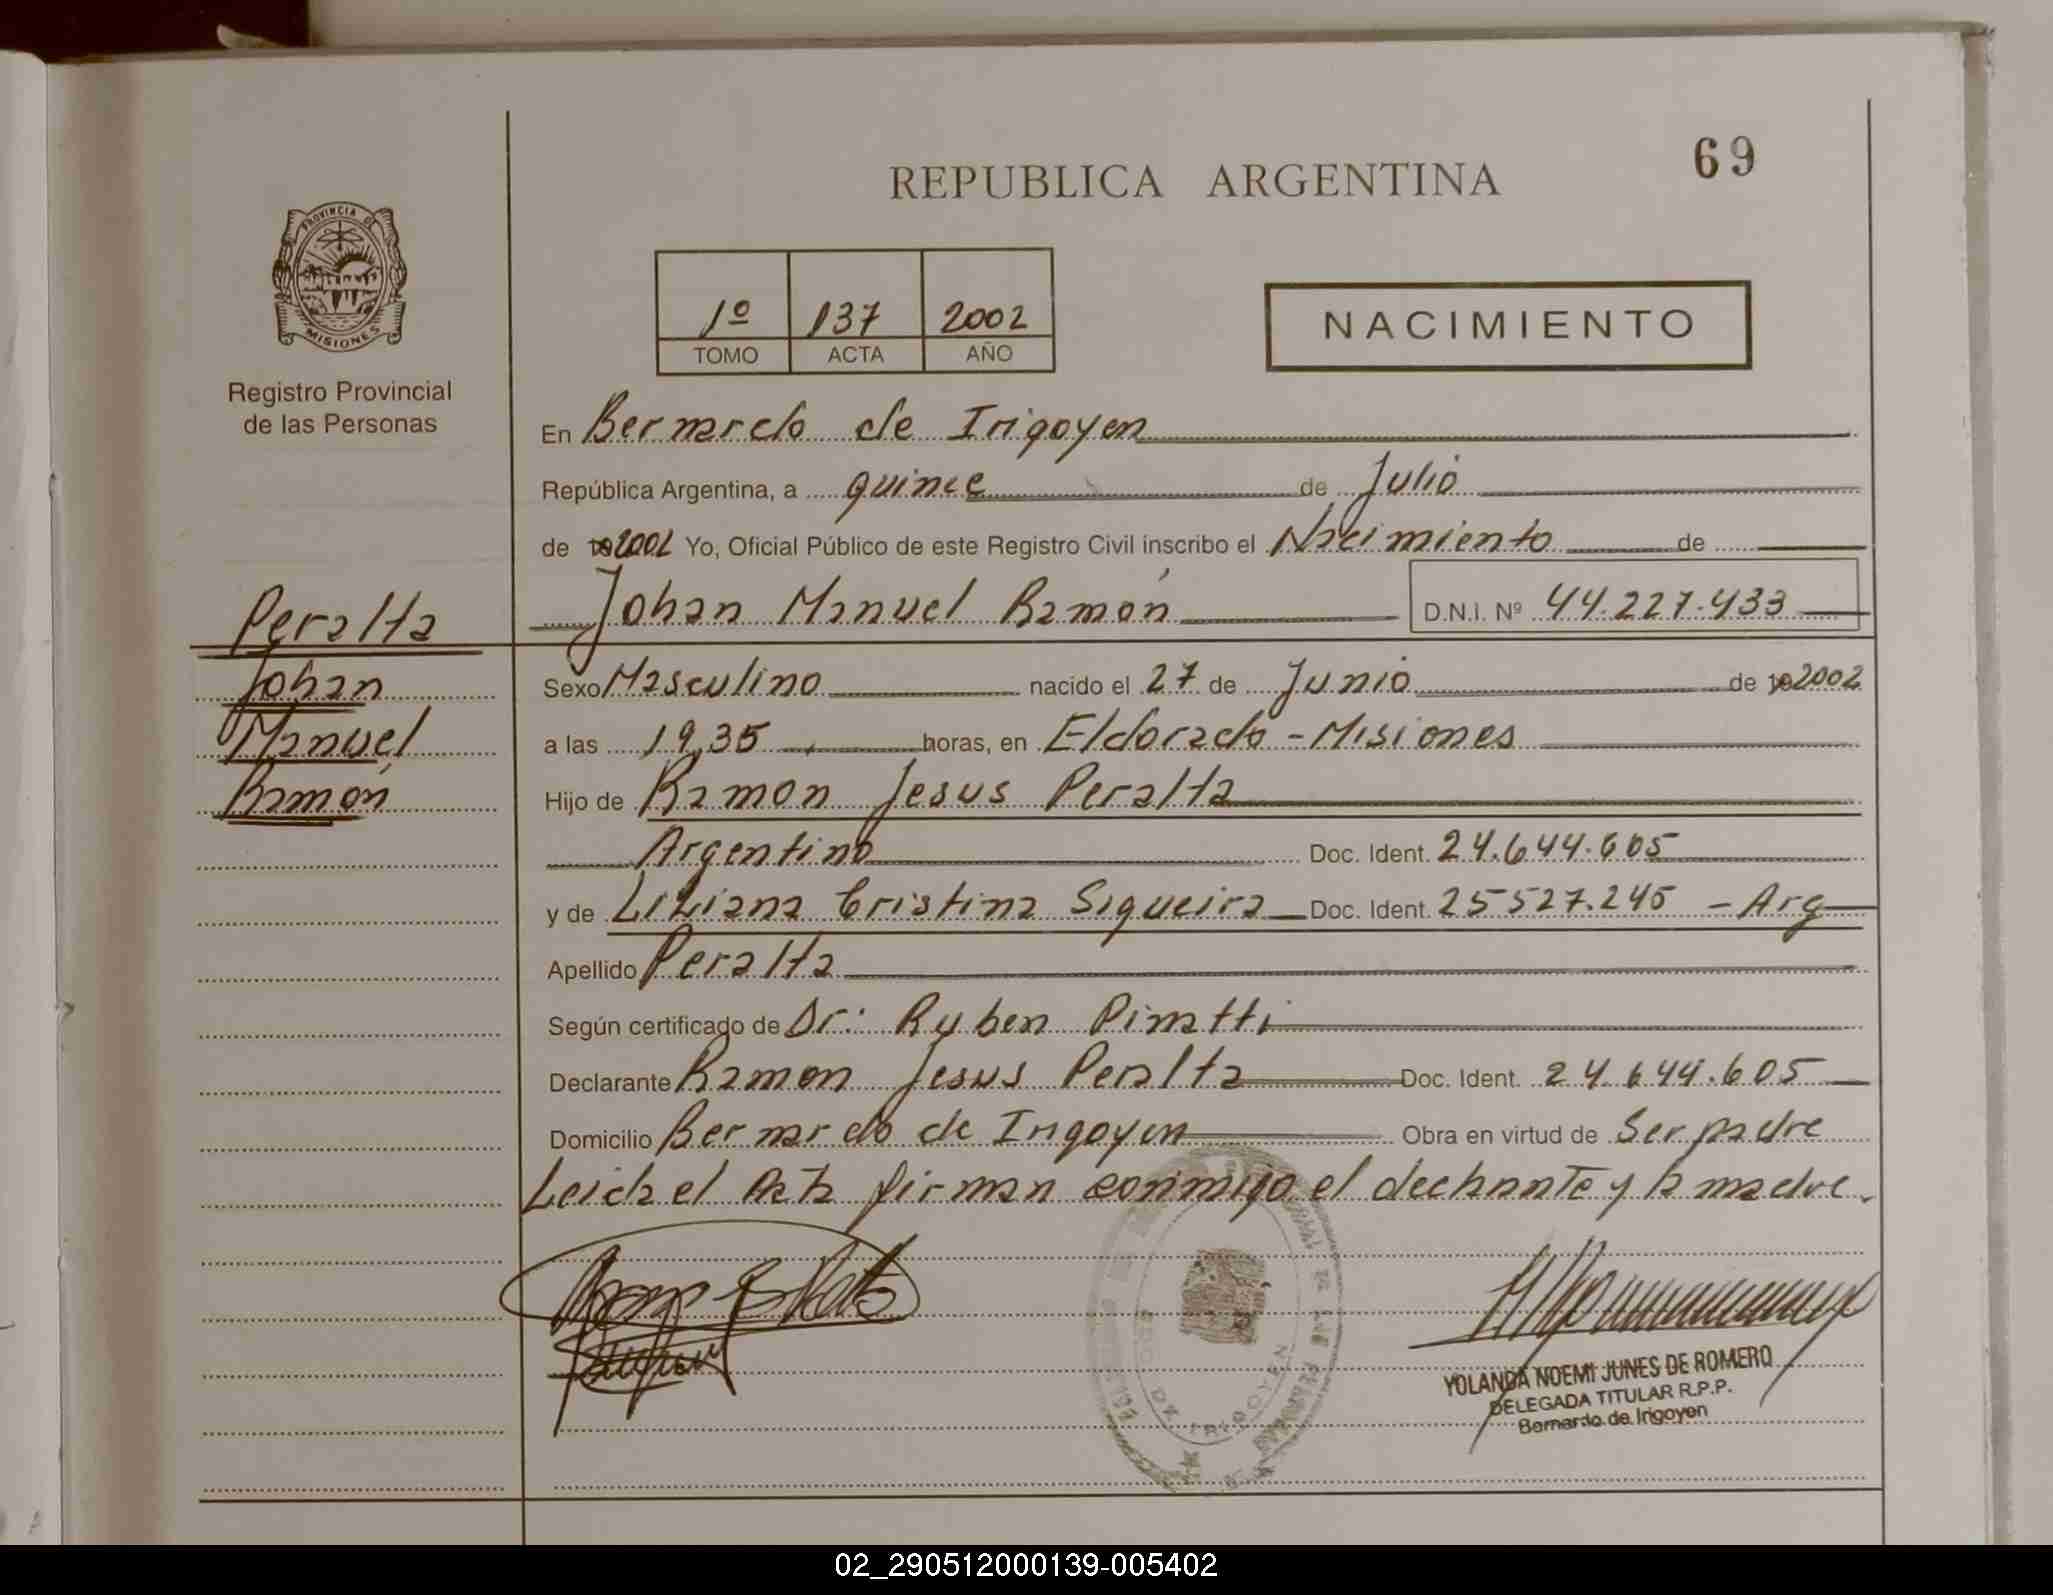 69
REPUBLICA ARGENTINA
PROVINCIA DE
MISIONES
Registro Provincial
de las Personas
1º 137 2002
TOMO ACTA AÑO
NACIMIENTO
En Bernardo de Irigoyen
República Argentina, a quince de Julio
de 192002 Yo, Oficial Público de este Registro Civil inscribo el Nacimiento de
Peralta
Johan Manuel Ramón D.N.I. Nº 44.227.433
Johan
Manuel
Ramón
Sexo Masculino nacido el 27 de Junio de 192002
a las 19,35 horas, en Eldorado - Misiones
Hijo de Ramon Jesus Peralta
Argentino Doc. Ident. 24.644.605
y de Liliana Cristina Siqueira Doc. Ident. 25527.245 - Arg
Apellido Peralta
Según certificado de Dr: Ruben
Declarante Ramon Jesus Peralta Doc. Ident. 24.644.605
Domicilio Bernardo de Irigoyen Obra en virtud de Ser padre
Leida el Acta firman conmigo el declarante y la madre.
DE IRIGOYEN
YOLANDA NOEMI JUNES DE ROMERO
DELEGADA TITULAR R.P.P.
Bernardo de Irigoyen
02_290512000139-005402